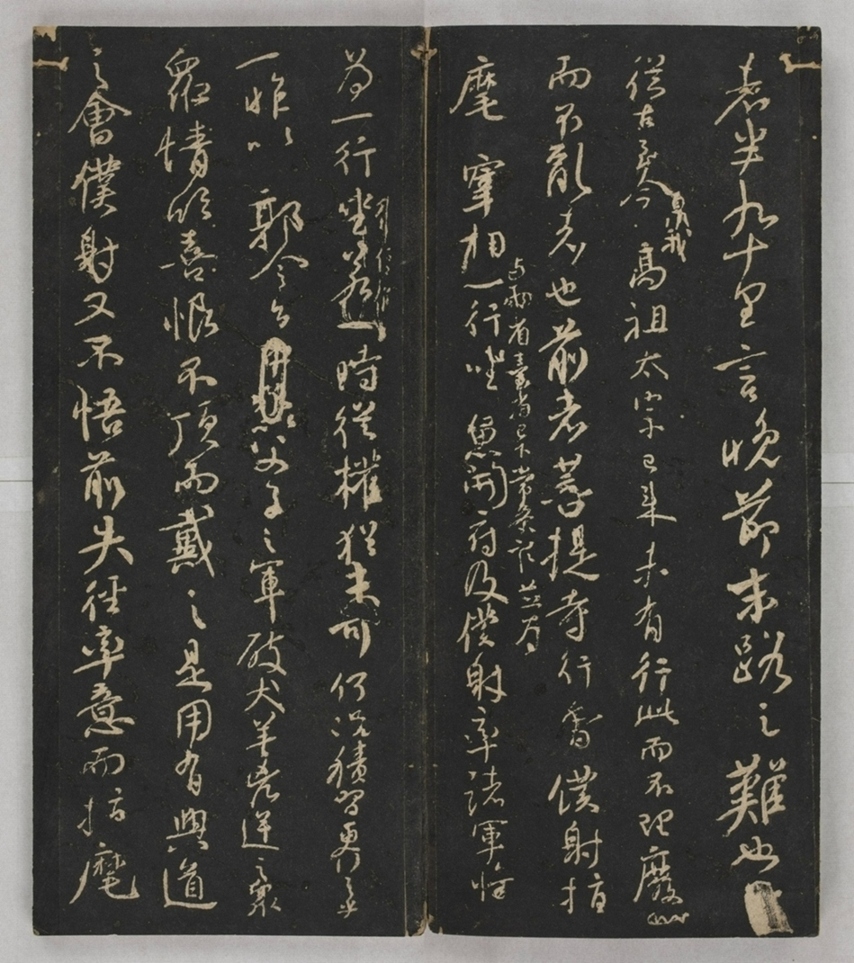 者半九十里言晚節末路之難也
從古至今曁我高祖太宗已来未有行此而不理廢
而不亂者也前者菩提寺行香僕射指
麾宰相与兩省臺省已下常參官並為一行坐魚開府及僕射率諸軍將
為一行坐若一時從權猶未可何況積習更行之乎
一昨以郭令公父子之軍破犬羊凶逆之衆
衆情欣喜恨不頂而戴之是用有興道
之會僕射又不悟前失徑率意而指麾